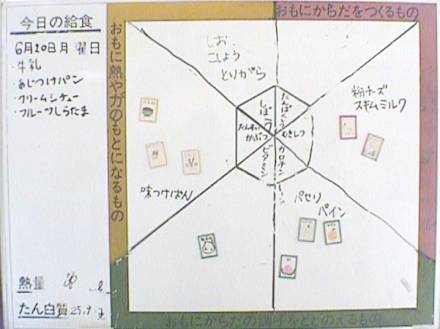 今日の給食
6月20日月曜日
・牛乳
・あじつけパン
・クリームシチュー
・フルーツしらたま
熱量
たん白質 25.9 g
おもに熱や力のもとになるもの
おもにからだをつくるもの
しお
こしょう
とりがら
粉チーズ
スキムミルク
しぼう
たんぱくしつ
むきしつ
カロチン
ビタミン
味つけぱん
パセリ
パイン
おもにからだの調子をととのえるもの